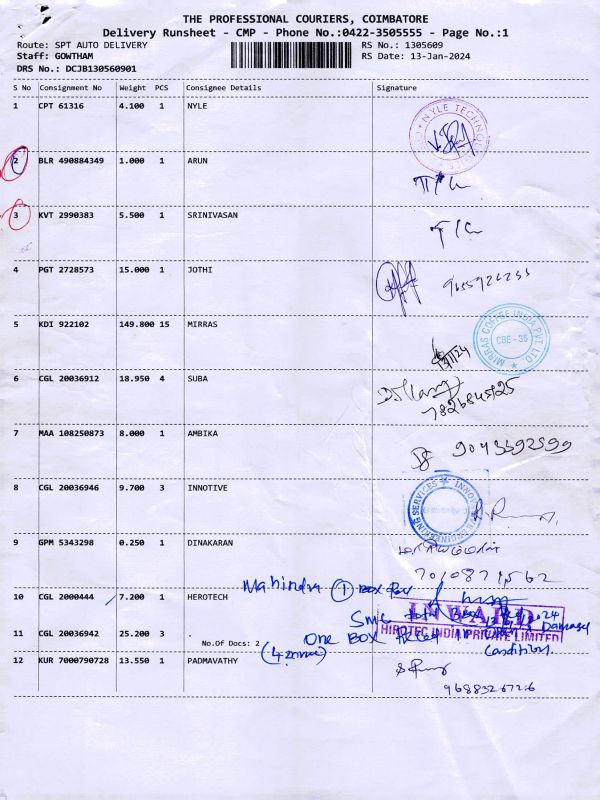 THE PROFESSIONAL COURIERS, COIMBATORE
Delivery Runsheet - CMP - Phone No.:0422-3505555 - Page No.:1
Route: SPT AUTO DELIVERY RS No.: 1305609
Staff: GOWTHAM RS Date: 13-Jan-2024
DRS No.: DCJB130560901
S No Consignment No Weight PCS Consignee Details Signature
1 CPT 61316 4.100 1 NYLE
NYLE TECHNO
2 BLR 490884349 1.000 1 ARUN
3 KVT 2990383 5.500 1 SRINIVASAN
4 PGT 2728573 15.000 1 JOTHI
5 KDI 922102 149.800 15 MIRRAS
MIRRAS COFFEE INDIA PVT LTD
CBE-35
6 CGL 20036912 18.950 4 SUBA
7 MAA 108250873 8.000 1 AMBIKA
9043592599
8 CGL 20036946 9.700 3 INNOTIVE
ENGINEERING SERVICES
9 GPM 5343298 0.250 1 DINAKARAN
7010871562
Mahindra 1 Box
10 CGL 2000444 7.200 1 HEROTECH
INWARD
HIROTEC INDIA PRIVATE LIMITED
11 CGL 20036942 25.200 3
One Box Damaged
No.Of Docs: 2
Condition.
12 KUR 7000790728 13.550 1 PADMAVATHY
9688326726